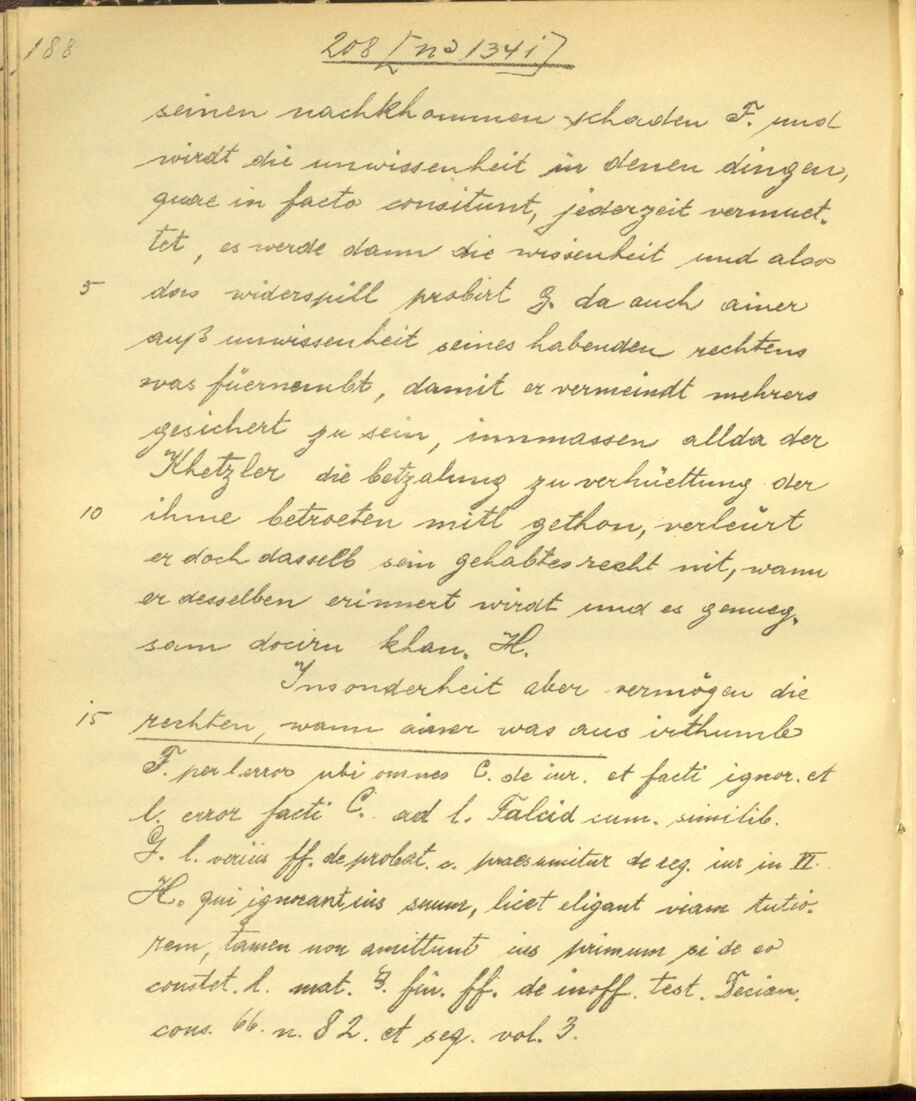 188
208 [no 134i]
seinen nachkhommen schaden F. und
wirdt die unwissenheit in denen dingen,
quae in facto consitunt, jederzeit vermuet-
tet, es werde dann die wissenheit und also
5 das widerspill probirt G. da auch ainer
auß unwissenheit seines habenden rechtens
was füernembt, damit er vermeindt mehrers
gesichert zu sein, innmassen allda der
Khetzler die betzalung zu verhüettung der
10 ihme betroeten mitl gethon, verleürt
er doch dasselb sein gehabtes recht nit, wann
er desselben erinnert wirdt und es genueg-
sam docirn khan. H.
Insonderheit aber vermögen die
15 rechten, wann ainer was aus irthumb
F. per l. error ubi omnes C. de iur. et facti ignor. et
l. error facti C. ad l. Falcid cum. similib.
G. l. verius ff. de probat. c. praesumitur de reg. iur in VI.
H. qui ignorant ius suum, licet eligant viam tutio-
rem, tamen non amittunt ius primum si de eo
constet. l. mat. §. fin. ff. de inoff. test. Decian.
cons. 66. n. 82. et seq. vol. 3.